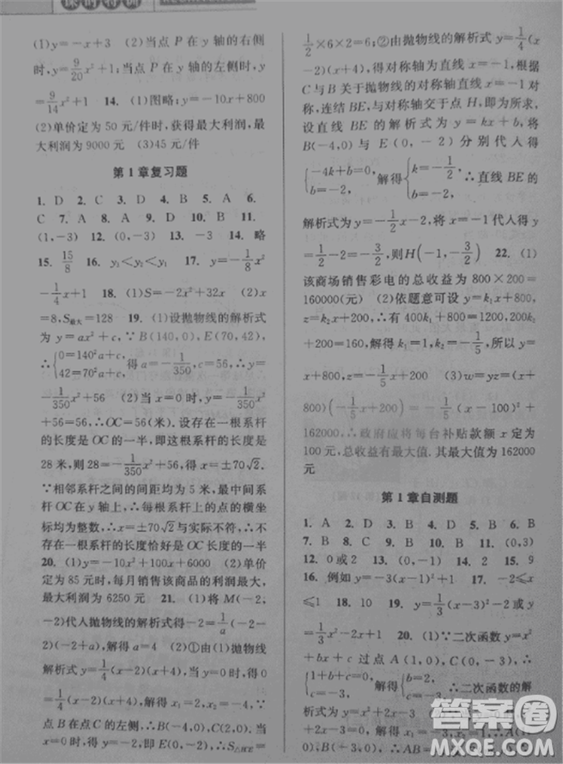 课时特训
(1)y=-x+3 (2)当点 P 在 y 轴的右侧
时,y=9/20x²+1;当点 P 在 y 轴的左侧时,y
=9/4x²+1 14. (1)图略;y=-10x+800
(2)单价定为 50 元/件时,获得最大利润,最
大利润为 9000 元 (3)45 元/件
第 1 章复习题
1. D 2. C 3. D 4. C 5. A 6.
C 7. A 8. D 9. C 10. B 11.
(1,-3) 12. (0,-3) 13. < 14. 略
15. 15/8 16. y₁<y₂<y₃ 17. y=-1/8x²
-1/4x+1 18. (1)S=-2x²+32x (2)x
=8,S最大= 19. (1)设抛物线的解析式
为 y=ax²+c,∵B(140,0),E(70,42),
∴{0=140²a+c, 42=70²a+c. ∴a=-1/350,c=56,∴y=
-1/350x²+56 (2)∵y=-1/350x²+56,∴c
=56=56米,∴OC=56米,设存在一根系杆
的长度是 OC 的一半,即这根系杆的长度是
28 米,则 28=-1/350x²+56,解得 x=±70√2.
∵相邻系杆之间的间距均为 5 米,最中间系
杆 OC 在 y 轴上,∴每根系杆上的点的横坐
标均为整数,∴x=±70√2与实际不符,∴不存
在一根系杆的长度恰好是 OC 长度的一半
20. (1)y=-10x²+100x+6000 (2)当单价
定为 85元时,每月销售该商品的利润最大,
最大利润为 6250 元 21. (1)将 M(-2,
-2)代入抛物线的解析式得 -2=1/a(-2
-2)(-2+a),解得 a=4 (2)①由(1)抛物线
解析式 y=1/4(x-2)(x+4),当 y=0 时,得 0
=1/4(x-2)(x+4),解得 x₁=2,x₂=-4. ∵
点 B 在点 C 的左侧,∴B(-4,0),C(2,0). 当
x=0时,得 y=-2,即 E(0,-2),∴S△BCE=
1/2×6×2=6;②由抛物线的解析式 y=1/4(x
-2)(x+4),得对称轴为直线 x=-1,根据
C与 B 关于抛物线的对称轴直线 x=-1 对
称,连结 BE,与对称轴交于点 H,即为所求,
设直线 BE 的解析式为 y=kx+b,将
B(-4,0) 与 E (0,-2) 分别代入得
{-4k+b=0, b=-2, 解得{k=-1/2, b=-2, ∴直线 BE 的
解析式为 y=-1/2x-2,将 x=-1代入得 y
=1/2-2=-3/2,则 H(-1,-3/2) 22. (1)
该商场销售彩电的总收益为 800×200=
160000(元) (2)依题意可设 y=k₁x+800,z
=k₂x+200,∴有 400k₁+800=1200,200k₂+
200=160,解得 k₁=1,k₂=-1/5,所以 y=x
+800,z=-1/5x+200 (3)w=yz=(x+
800)(-1/5x+200)=-1/5(x-100)²+
162000. ∴政府应将每台补贴款额 x 定为
100 元,总收益有最大值. 其最大值为 162000
元
第 1 章自测题
1. A 2. D 3. B 4. A 5. B 6.
D 7. B 8. B 9. B 10. C 11. (0,
12. 0或2 13. (0,-1) 14. 2 15. 9
16. 例如 y=x²-1 17. -2≤x
≤1 18. 10 19. y=1/3(x-3)²-2或 y=
1/3x²-2x+1 20. (1)∵二次函数 y=x²
+bx+c 过点 A(1,0),C(0,-3),
∴{1+b+c=0, c=-3, 解得{b=2, c=-3, ∴二次函数的解析
式为 y=x²+2x-3 (2)∵当 y=
0时,x²+2x-3=0,解得 x₁=-3,x₂=1,
∴A(1,0),B(-3,0),∴AB
答案圈
MXQE.COM